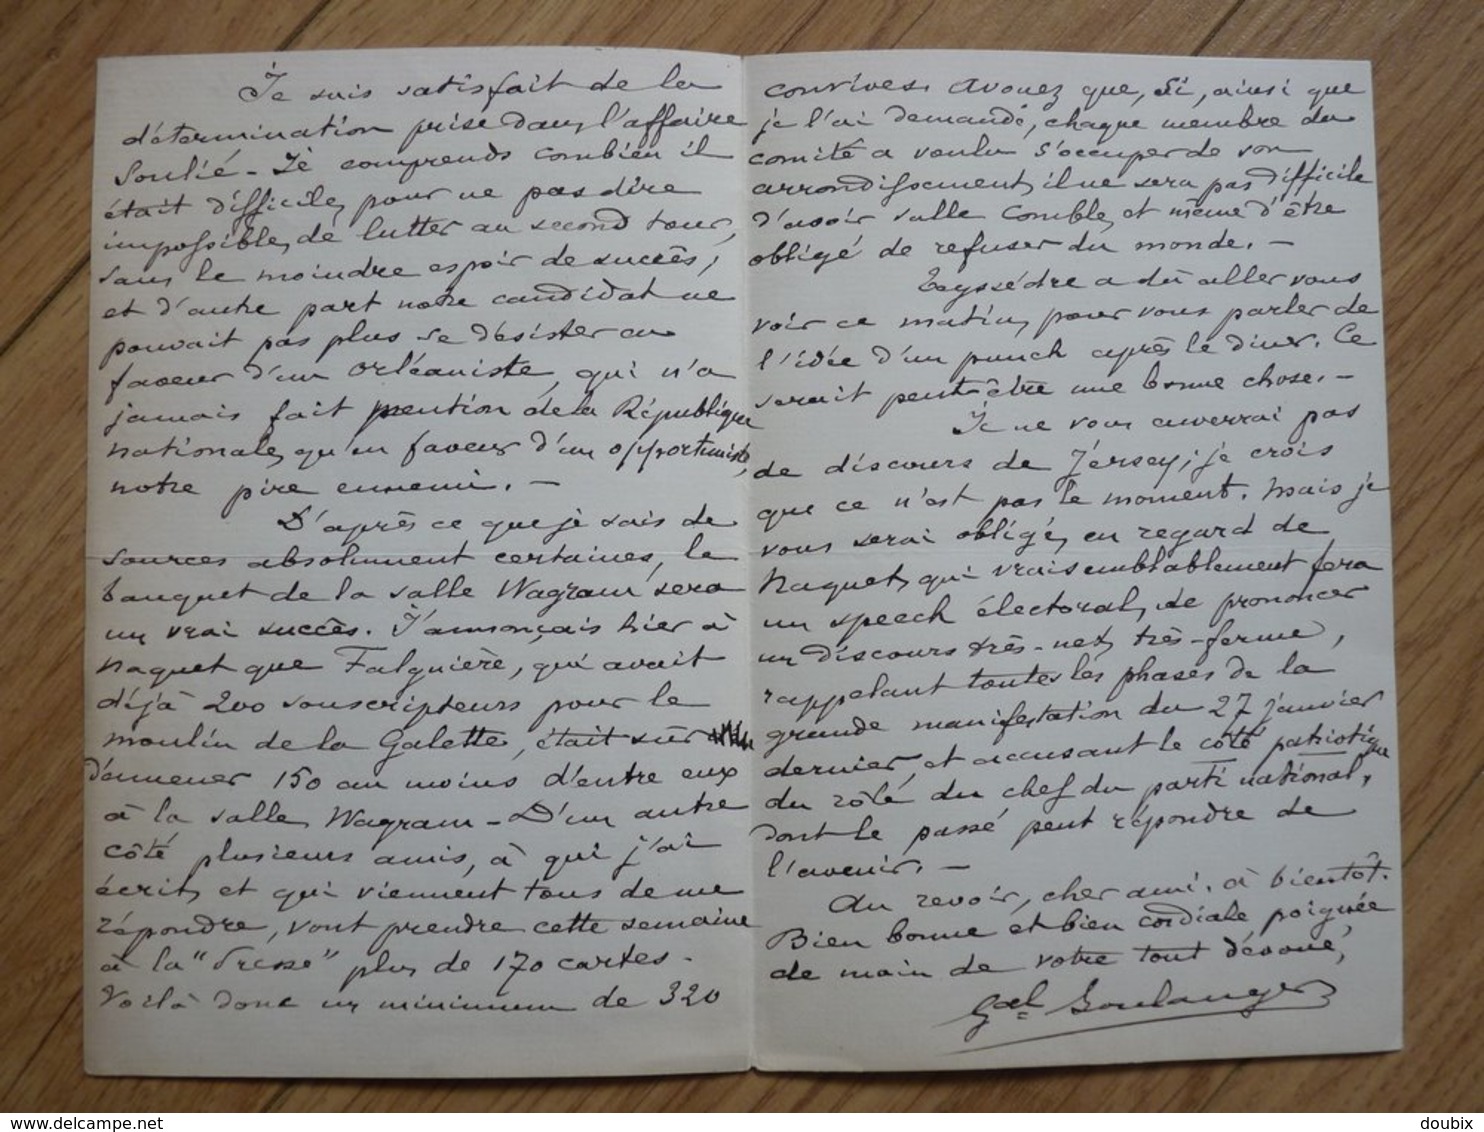 Je suis satisfait de la
détermination prise dans l'affaire
Soulié - Je comprends combien il
était difficile, pour ne pas dire
impossible, de lutter au second tour,
sans le moindre espoir de succès,
et d'autre part notre candidat ne
pouvait pas plus se désister en
faveur d'un orléaniste, qui n'a
jamais fait mention de la République
nationale, qu'en faveur d'un opportuniste,
notre pire ennemi. -
D'après ce que je sais de
sources absolument certaines, le
banquet de la salle Wagram sera
un vrai succès. J'annonçais hier à
Naquet que Falguière, qui avait
déjà 200 souscripteurs pour le
moulin de la Galette, était sûr
d'amener 150 au moins d'entre eux
à la salle Wagram - D'un autre
côté plusieurs amis, à qui j'ai
écrit, et qui viennent tous de me
répondre, vont prendre cette semaine
à la "Presse" plus de 170 cartes -
Voilà donc un minimum de 320
convives. Avouez que, si, ainsi que
je l'ai demandé, chaque membre du
comité a voulu s'occuper de son
arrondissement, il ne sera pas difficile
d'avoir salle comble, et même d'être
obligé de refuser du monde. -
Teyssèdre a dû aller vous
voir ce matin, pour vous parler de
l'idée d'un punch après le diner. Ce
serait peut-être une bonne chose. -
Je ne vous enverrai pas
de discours de Jersey; je crois
que ce n'est pas le moment. Mais je
vous serai obligé, en regard de
Naquet, qui vraisemblablement fera
un speech électoral, de prononcer
un discours très-net, très-ferme,
rappelant toutes les phases de la
grande manifestation du 27 janvier
dernier, et accusant le côté patriotique
du rôle du chef du parti national,
dont le passé peut répondre de
l'avenir. -
Au revoir, cher ami. à bientôt.
Bien bonne et bien cordiale poignée
de main de votre tout dévoué,
Gal Boulanger
delcampe.net
doubix